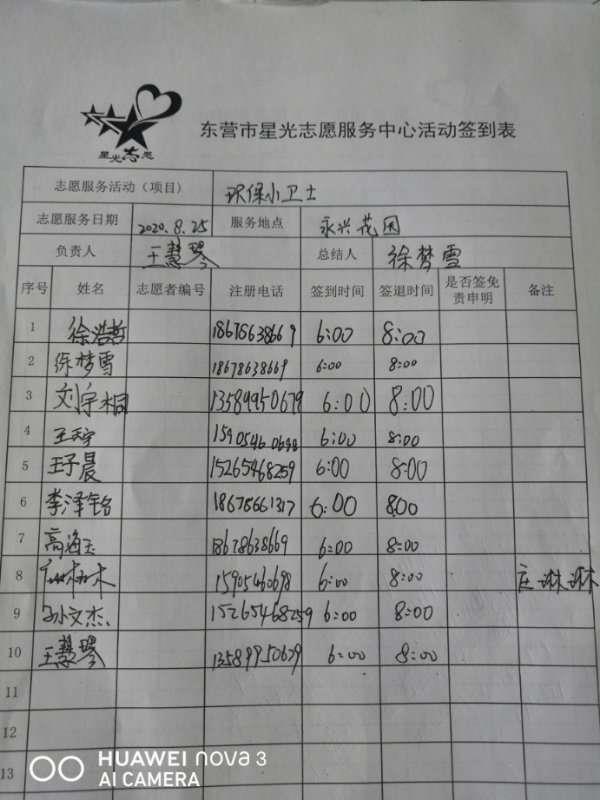 星光志愿
东营市星光志愿服务中心活动签到表
志愿服务活动（项目） 环保小卫士
志愿服务日期 2020.8.25 服务地点 永兴花园
负责人 王慧琴 总结人 徐梦雪
序号 姓名 志愿者编号 注册电话 签到时间 签退时间 是否签免责申明 备注
1 徐浩哲 18678638669 6:00 8:00
2 徐梦雪 18678638669 6:00 8:00
3 刘宇桐 13589950679 6:00 8:00
4 王天宇 15905460698 6:00 8:00
5 王子晨 15265468259 6:00 8:00
6 李泽铭 18678661317 6:00 8:00
7 高海玉 18678638669 6:00 8:00
8 15905460698 6:00 8:00 庄琳琳
9 孙文杰 15265468259 6:00 8:00
10 王慧琴 13589950679 6:00 8:00
11
12
13
HUAWEI nova 3
AI CAMERA